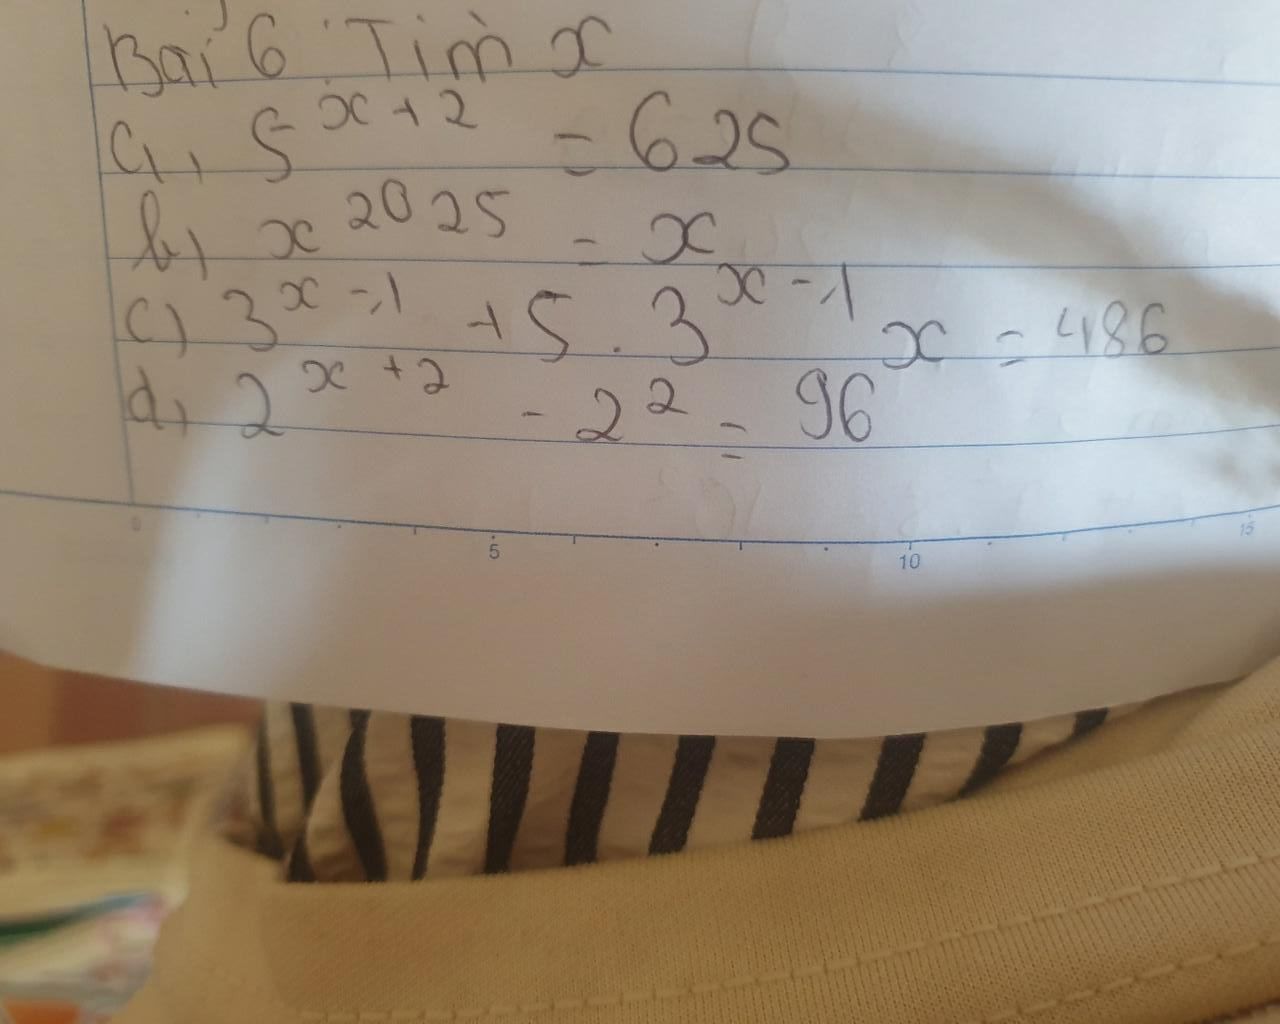 Bài 6: Tìm x
a, 5^{x+2} = 625
b, x^{2025} = x
c) 3^{x-1} + 5 . 3^{x-1} x = 486
d, 2^{x+2} - 2^2 = 96
0 5 10 15